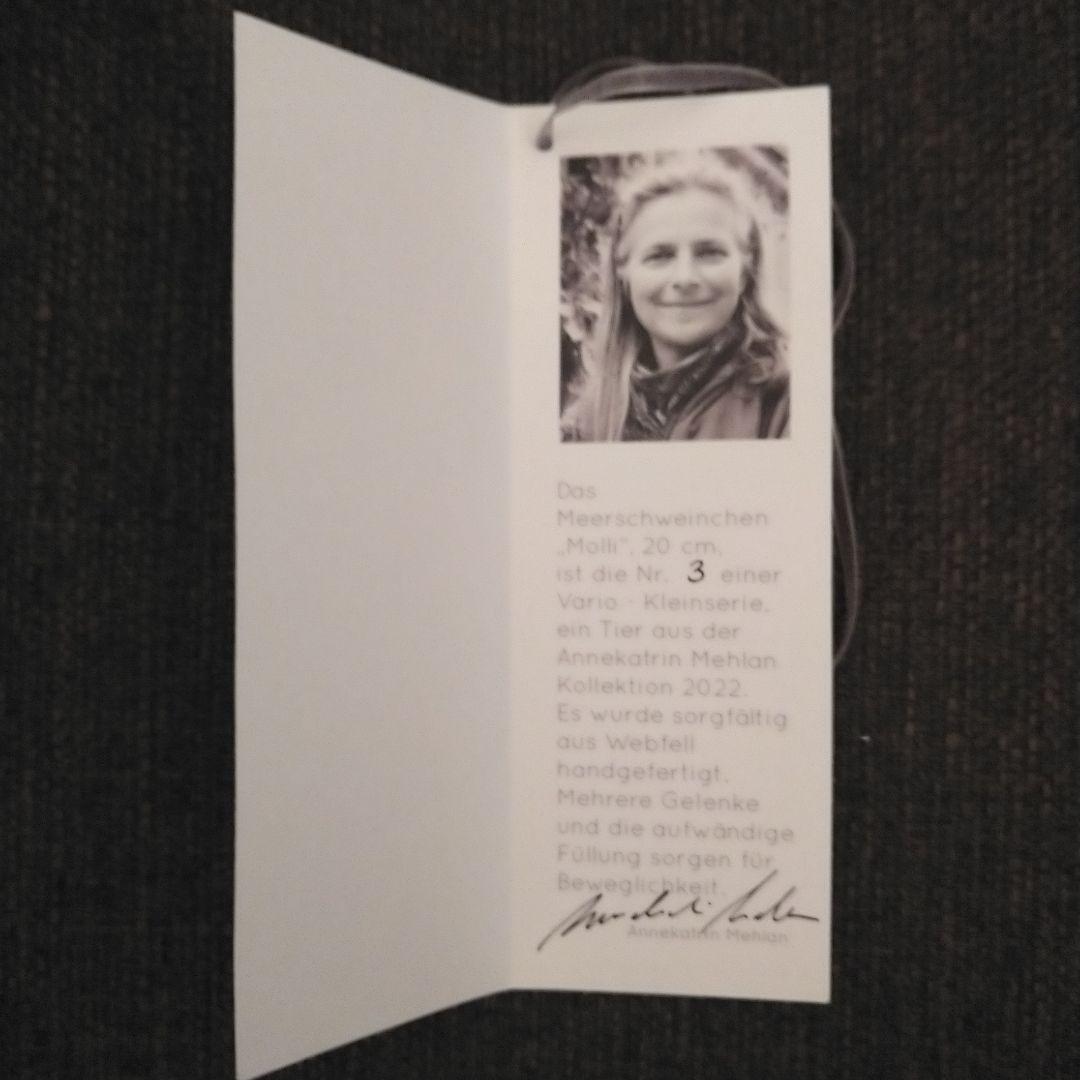 Das
Meerschweinchen
„Molli“, 20 cm,
ist die Nr. 3 einer
Vario - Kleinserie,
ein Tier aus der
Annekatrin Mehlan
Kollektion 2022.
Es wurde sorgfältig
aus Webfell
handgefertigt.
Mehrere Gelenke
und die aufwändige
Füllung sorgen für
Beweglichkeit.
Annekatrin Mehlan